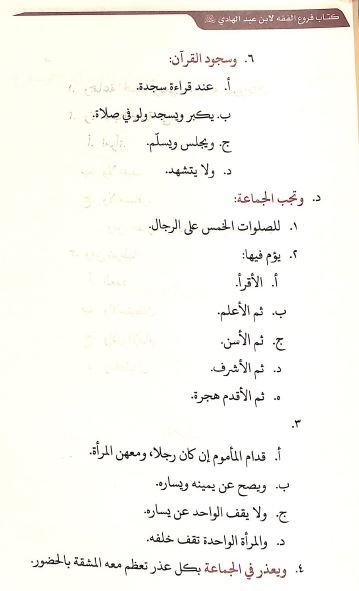 كتاب فروع الفقه لابن عبد الهادي
٦. وسجود القرآن:
أ. عند قراءة سجدة.
ب. يكبر ويسجد ولو في صلاة.
ج. ويجلس ويسلّم.
د. ولا يتشهد.
د. وتجب الجماعة:
١. للصلوات الخمس على الرجال.
٢. يؤم فيها:
أ. الأقرأ.
ب. ثم الأعلم.
ج. ثم الأسن.
د. ثم الأشرف.
ه. ثم الأقدم هجرة.
٣.
أ. قدام المأموم إن كان رجلا، ومعهن المرأة.
ب. ويصح عن يمينه ويساره.
ج. ولا يقف الواحد عن يساره.
د. والمرأة الواحدة تقف خلفه.
٤. ويعذر في الجماعة بكل عذر تعظم معه المشقة بالحضور.